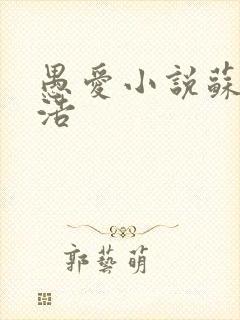 愚愛小說蘇
活
郭藝萌